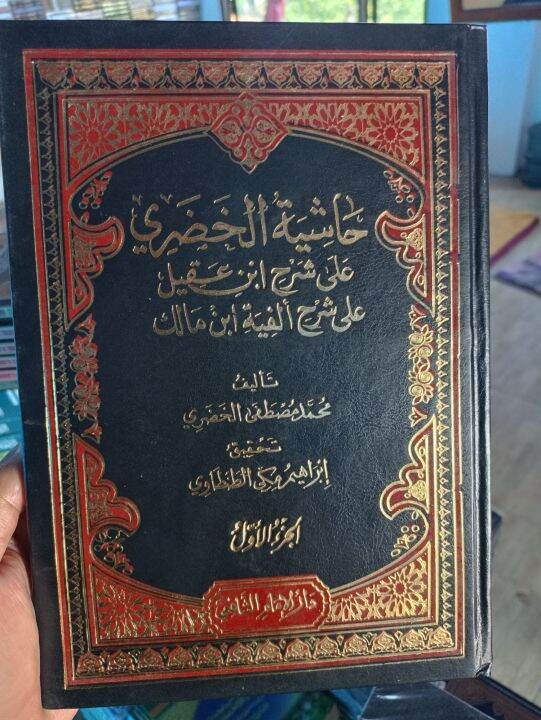 حَاشِيَةُ الخَضَرِي
عَلَى شَرْحِ ابْنِ عَقِيل
عَلَى شَرْحِ أَلفِيَة ابْنِ مَالِك
تَأليفُ
مُحَمَّد مُصْطَفَى الخَضَرِي
تَحْقِيق
إبْرَاهِيم مَكِّي الطَنْطَاوِي
الجُزءُ الأوَّلُ
دَارُ الإمَام الشَّافِعي